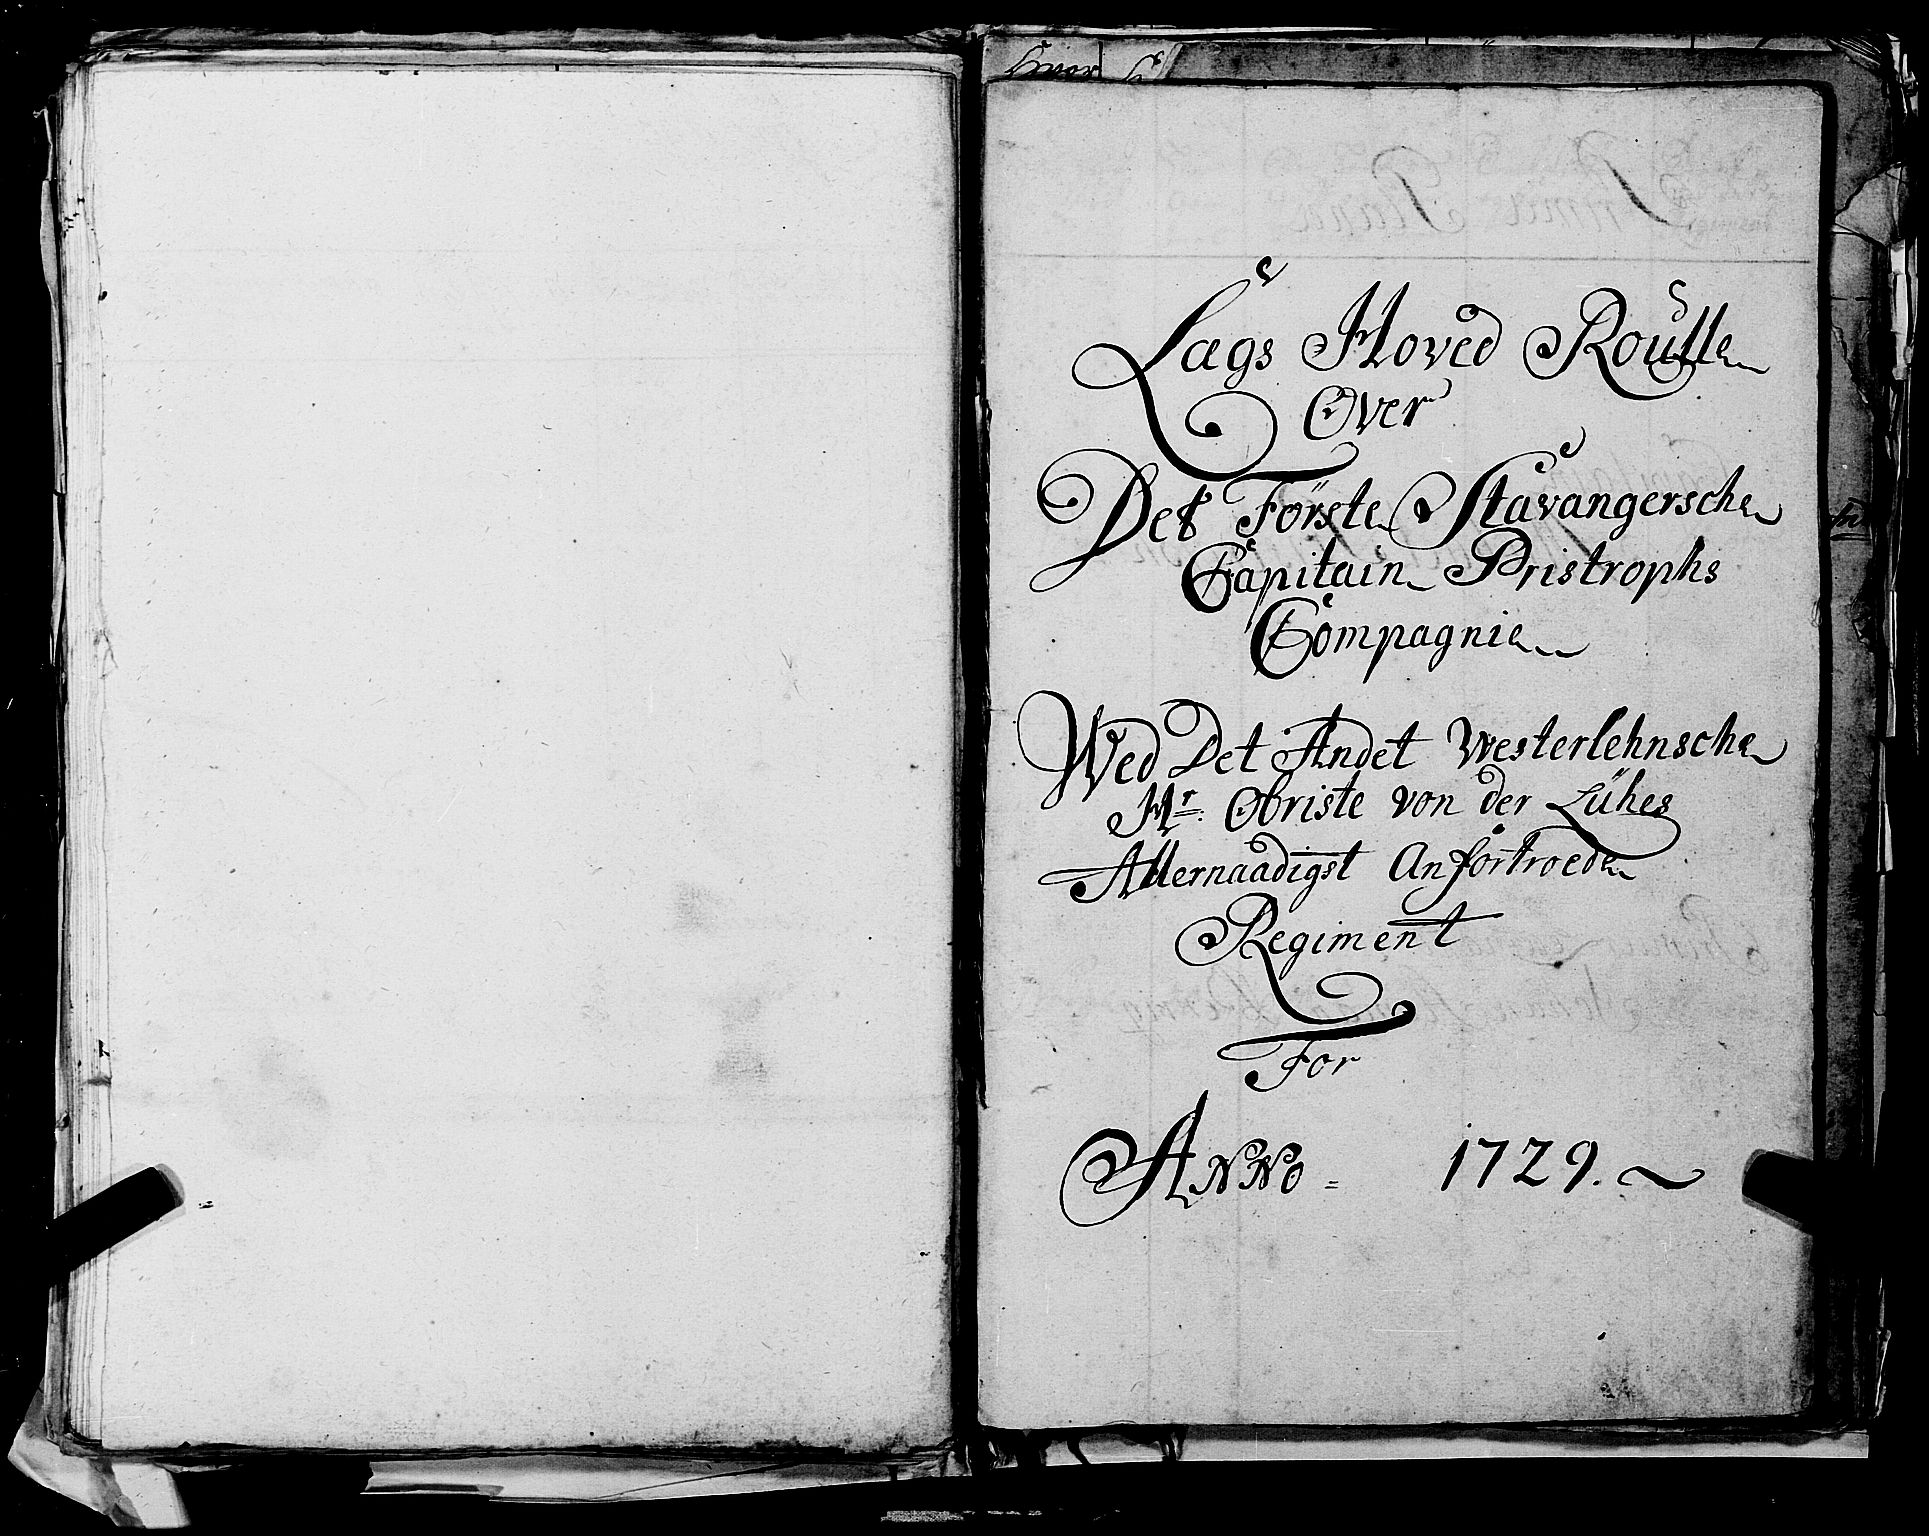 Lægs Hoved Roulle
Over
Det Förste Stavangersche
Capitain Pristrophs
Compagnie
Wed Det Andet Westerlehnsche
Hr. Obriste von der Lühes
Allernaadigst Anfortroede
Regiment
For
ANNO = 1729.